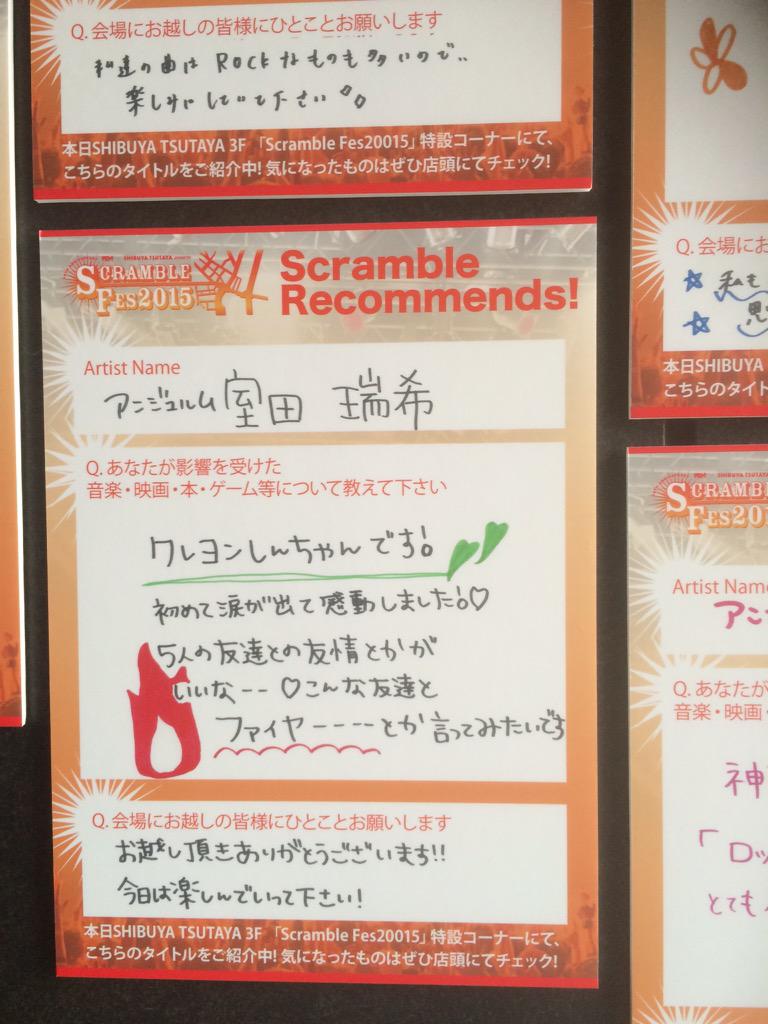 Q. 会場にお越しの皆様にひとことお願いします
私達の曲は ROCKなものも多いので..
楽しみにしていて下さい
本日SHIBUYA TSUTAYA 3F 「Scramble Fes20015」特設コーナーにて、
こちらのタイトルをご紹介中! 気になったものはぜひ店頭にてチェック!
SHIBUYA TSUTAYA
SCRAMBLE
FES2015
Scramble
Recommends!
Artist Name
アンジュルム 室田 瑞希
Q. あなたが影響を受けた
音楽・映画・本・ゲーム等について教えて下さい
クレヨンしんちゃんです!
初めて涙が出て感動しました!♡
5人の友達との友情とかが
いいなーー ♡こんな友達と
ファイヤーーーーとか言ってみたいです
Q. 会場にお越しの皆様にひとことお願いします
お越し頂きありがとうございます!!
今日は楽しんでいって下さい!
本日SHIBUYA TSUTAYA 3F 「Scramble Fes20015」特設コーナーにて、
こちらのタイトルをご紹介中! 気になったものはぜひ店頭にてチェック!
Q. 会場にお
☆私も
☆思
本日SHIBUYA
こちらのタイト
SCRAMB
FES201
Artist Name
アン
Q. あなたが
音楽・映画・
神
「ロッ
とても
Q. 会場にお